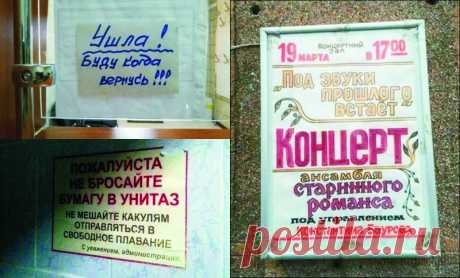 Ушла!
Буду когда
вернусь!!!
ПОЖАЛУЙСТА
НЕ БРОСАЙТЕ
БУМАГУ В УНИТАЗ
НЕ МЕШАЙТЕ КАКУЛЯМ
ОТПРАВЛЯТЬСЯ В
СВОБОДНОЕ ПЛАВАНИЕ
С уважением, администрация.
КОНЦЕРТНЫЙ ЗАЛ
19 МАРТА В 1700
"Под звуки
прошлого
встаёт"
КОНЦЕРТ
ансамбля
старинного
романса
под управлением
Константина
posta.ru